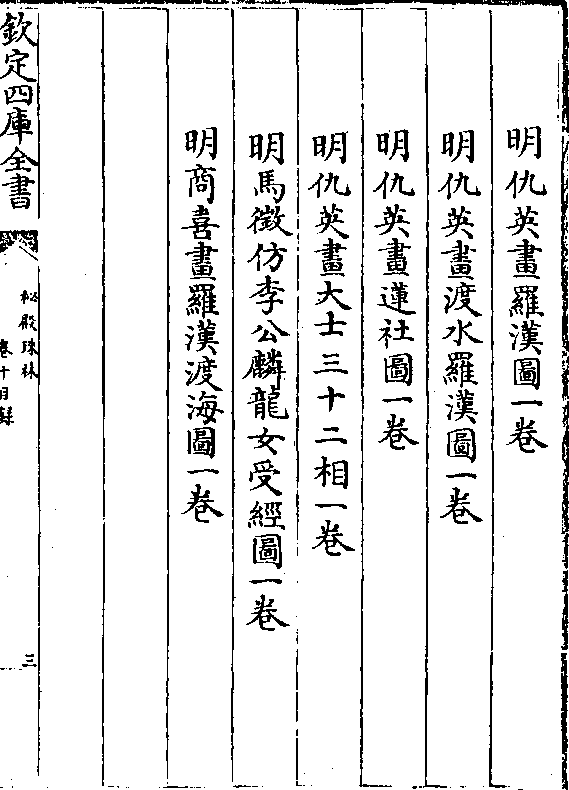 明仇英畫羅漢圖一卷
明仇英畫渡水羅漢圖一卷
明仇英畫蓮社圖一卷
明仇英畫大士三十二相一卷
明馬徵仿李公麟龍女受經圖一卷
明商喜畫羅漢渡海圖一卷
欽定四庫全書
秘殿珠林
卷十目録
三